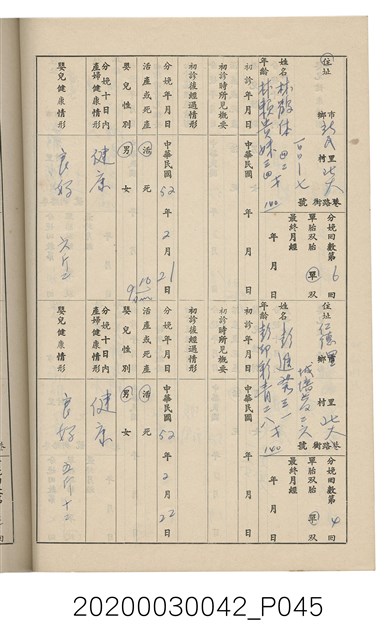 住址 鄉市 新民 村里 北大 街路巷 一〇一七 號
分娩回數第 6 回
單胎 双胎 單 双
最終月經 年 月 日
姓名
年齡
初診 年 月 日
初診時所見概要
初診後經過情形
分娩年月日 中華民國 52 年 2 月 21 日
活產或死產 活 死
嬰兒性別 男 女
分娩十日內產婦健康情形 健康
嬰兒健康情形 良好
住址 仁德 鄉 村里 北大 街路巷
分娩回數第 4 回
單胎 双胎 單 双
最終月經 年 月 日
姓名
年齡
初診 年 月 日
初診時所見概要
初診後經過情形
分娩年月日 中華民國 52 年 2 月 22 日
活產或死產 活 死
嬰兒性別 男 女
分娩十日內產婦健康情形 健康
嬰兒健康情形 良好
20200030042_P045